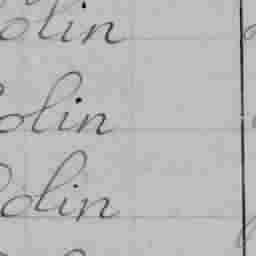 olin
olin
olin